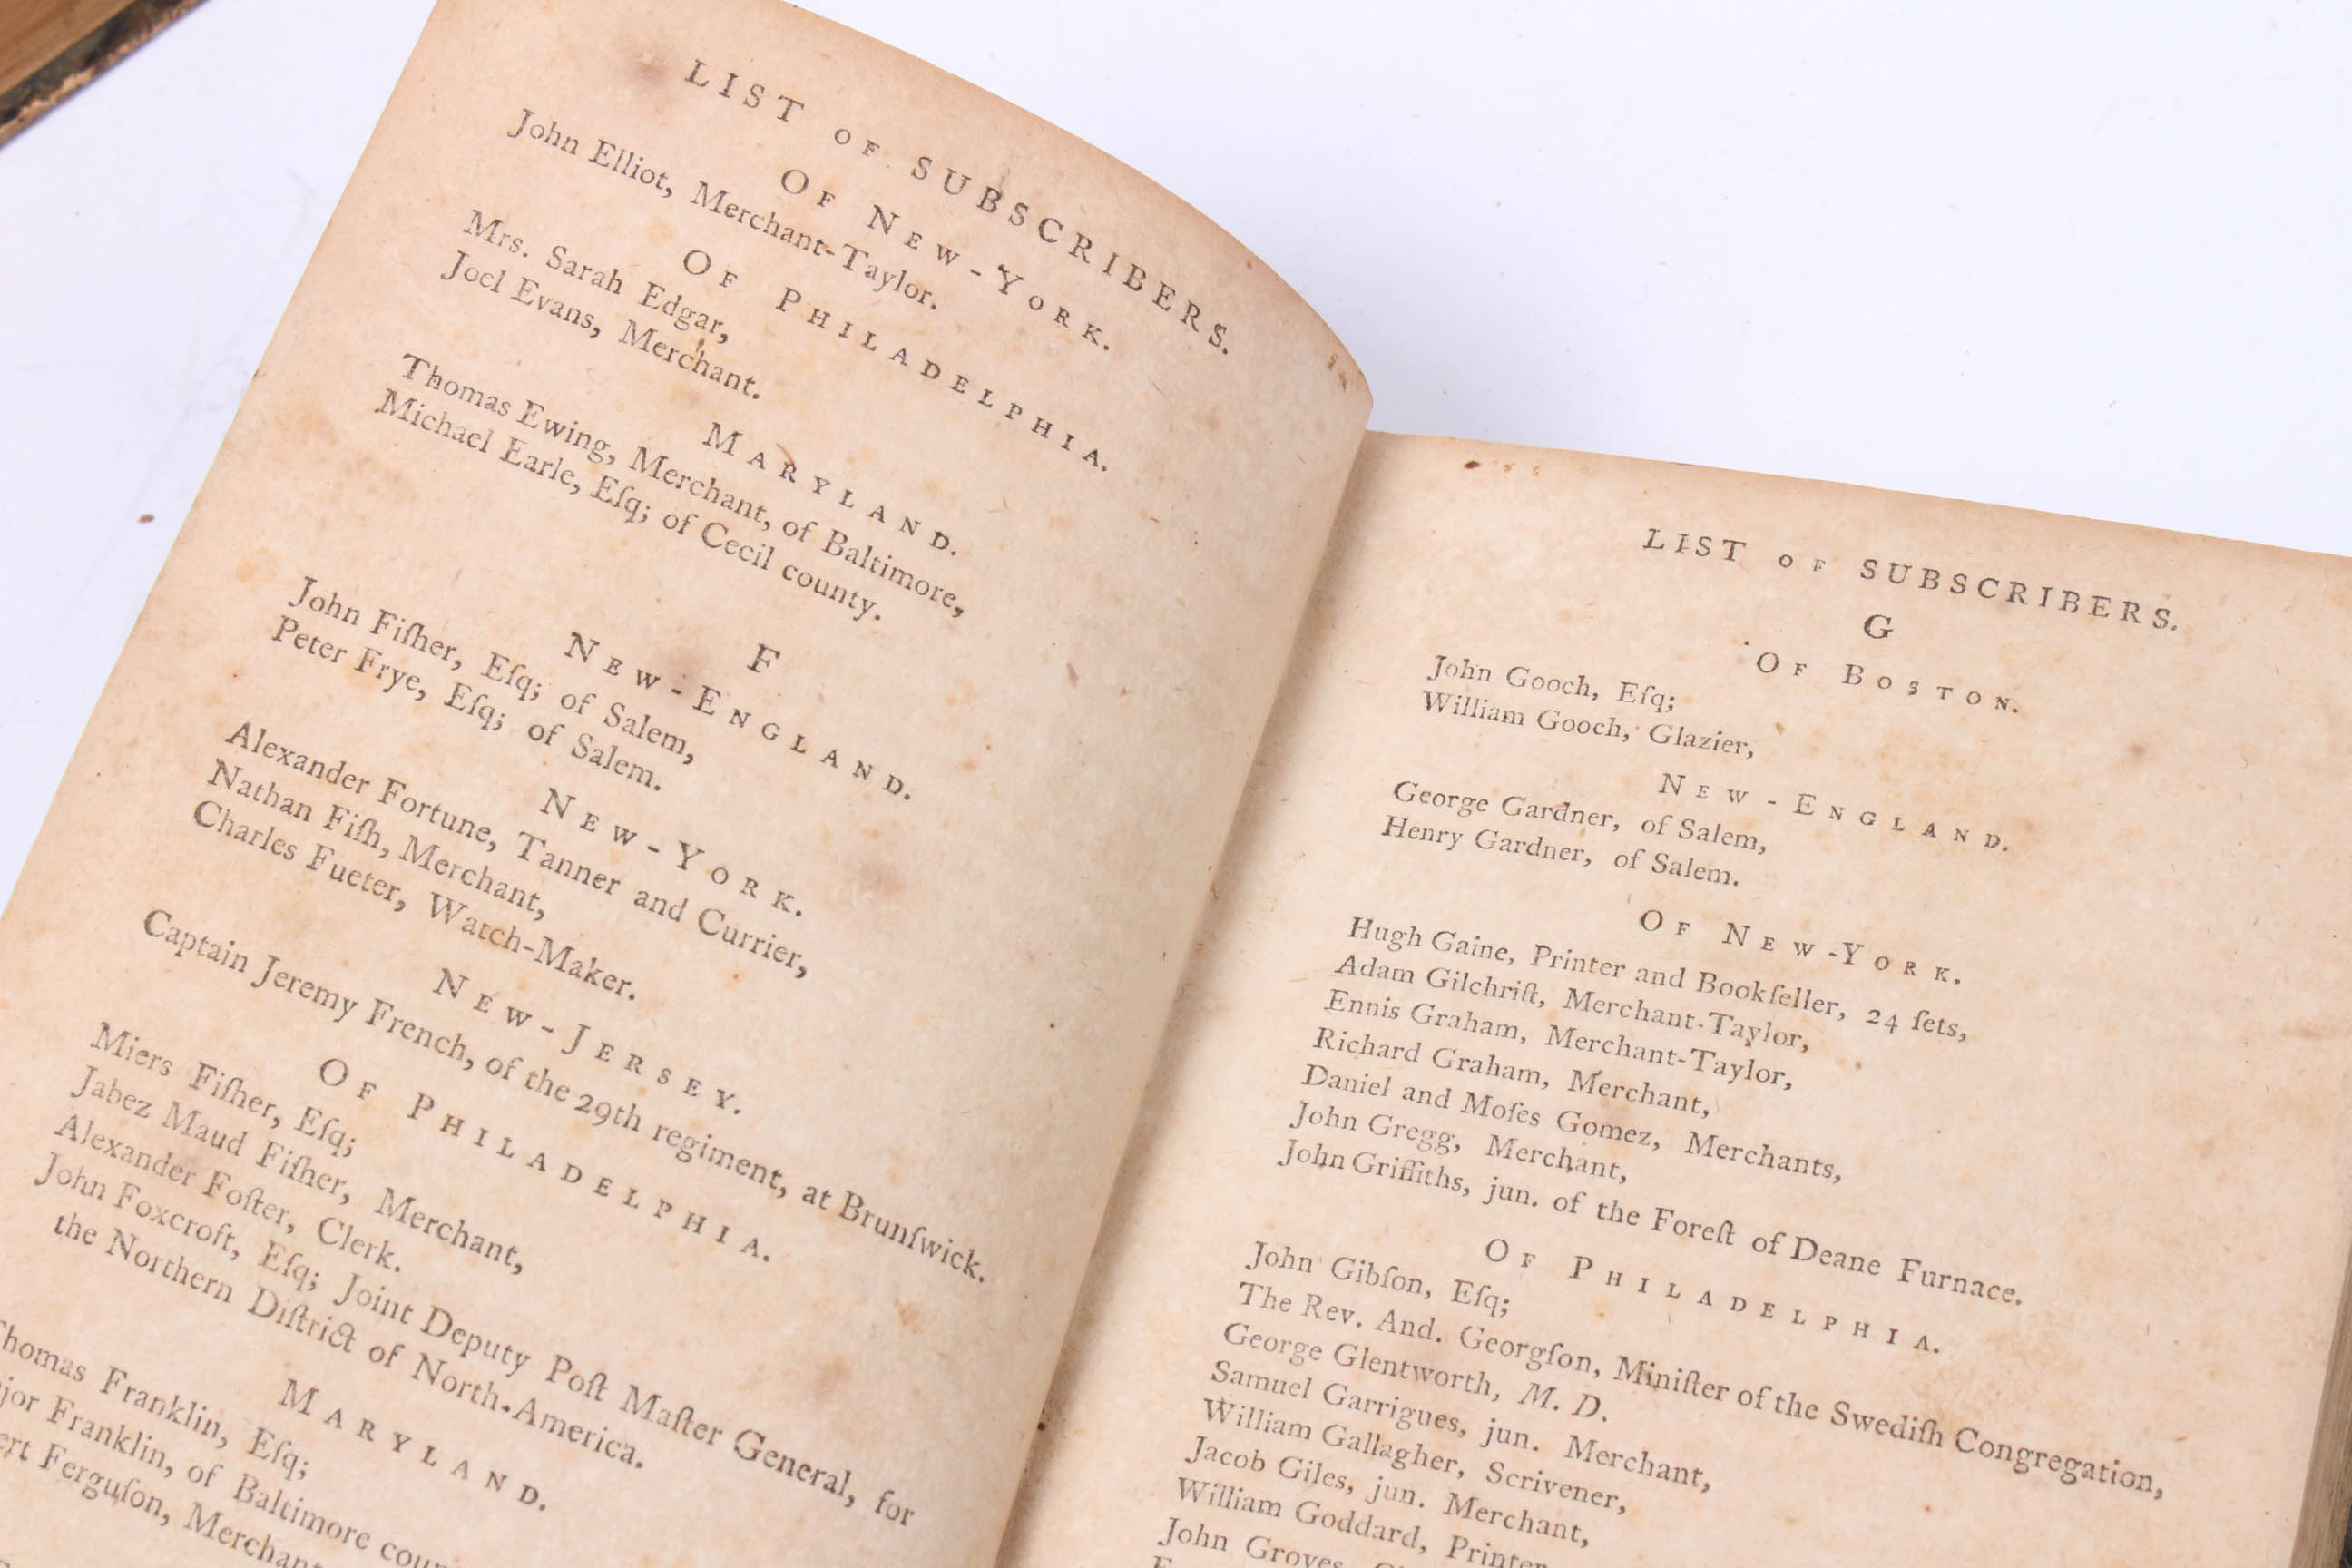 LIST OF SUBSCRIBERS.
OF NEW-YORK.
John Elliot, Merchant-Taylor.
OF PHILADELPHIA.
Mrs. Sarah Edgar,
Joel Evans, Merchant.
MARYLAND.
Thomas Ewing, Merchant, of Baltimore,
Michael Earle, Eſq; of Cecil county.
F
NEW-ENGLAND.
John Fiſher, Eſq; of Salem,
Peter Frye, Eſq; of Salem.
NEW-YORK.
Alexander Fortune, Tanner and Currier,
Nathan Fiſh, Merchant,
Charles Fueter, Watch-Maker.
NEW-JERSEY.
Captain Jeremy French, of the 29th regiment, at Brunſwick.
OF PHILADELPHIA.
Miers Fiſher, Eſq;
Jabez Maud Fiſher, Merchant,
Alexander Foſter, Clerk.
John Foxcroft, Eſq; Joint Deputy Poſt Maſter General, for
the Northern Diſtrict of North-America.
MARYLAND.
Thomas Franklin, Eſq;
Franklin, of Baltimore
Ferguſon, Merchant
LIST OF SUBSCRIBERS.
G
OF BOSTON.
John Gooch, Eſq;
William Gooch, Glazier,
NEW-ENGLAND.
George Gardner, of Salem,
Henry Gardner, of Salem.
OF NEW-YORK.
Hugh Gaine, Printer and Bookſeller, 24 ſets,
Adam Gilchriſt, Merchant-Taylor,
Ennis Graham, Merchant-Taylor,
Richard Graham, Merchant,
Daniel and Moſes Gomez, Merchants,
John Gregg, Merchant,
John Griffiths, jun. of the Foreſt of Deane Furnace.
OF PHILADELPHIA.
John Gibſon, Eſq;
The Rev. And. Georgſon, Miniſter of the Swediſh Congregation,
George Glentworth, M. D.
Samuel Garrigues, jun. Merchant,
William Gallagher, Scrivener,
Jacob Giles, jun. Merchant,
William Goddard, Printer
John Groves,